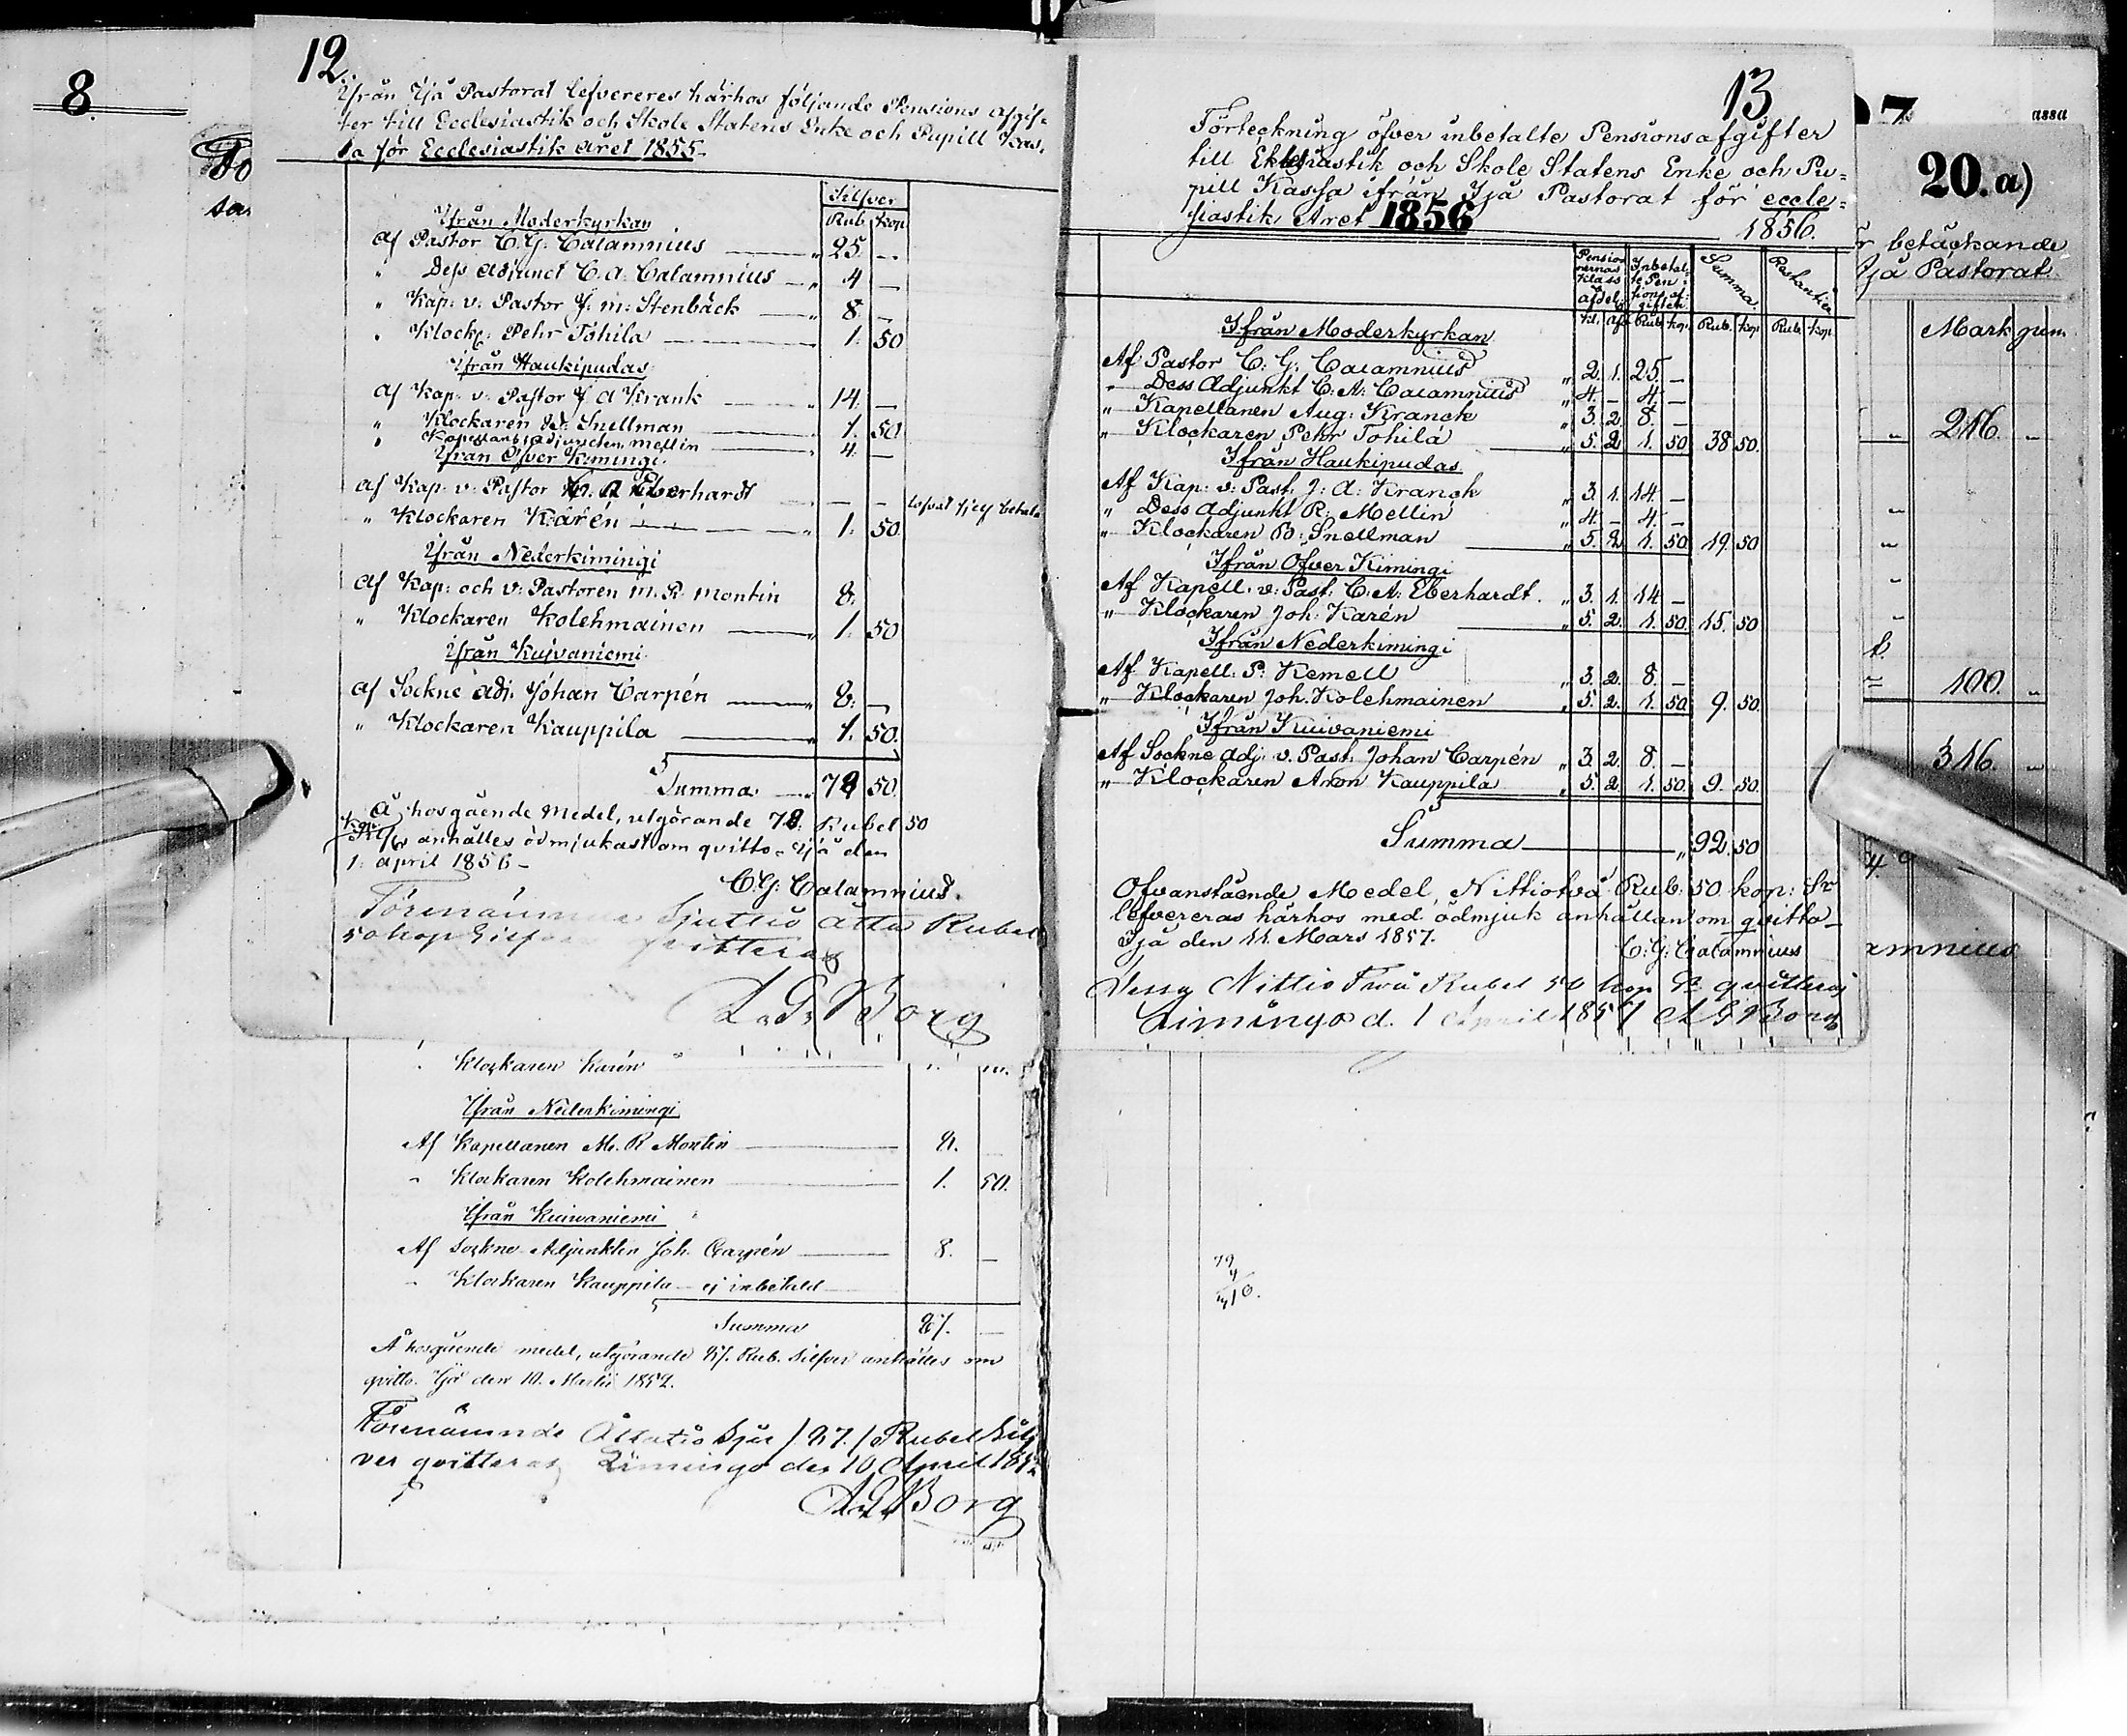 8.
12.
Ifrån Ijå Pastorat lefvereres härhos följande Pensions afgif-
ter till Ecclesiastik och Skole Statens Enke och Pupill Kas.
sa för Ecclesiastik året 1855.
Silfver
Rub. kop.
Ifrån Moderkyrkan
Af Pastor C. G. Calamnius „ 25. —
„ Dess Adjunct C. A. Calamnius „ 4 —
„ Kap: v: Pastor J. M. Stenbäck „ 8. —
„ Klock: Pehr Tohila 1. 50
Ifrån Haukipudas
Af Kap: v: Pastor J A Krank „ 14. —
„ Klockaren Snellman 1. 50
„ Kapellans Adjuncten Mellin 4. —
Ifrån Öfver Kimingi
Af Kap: v: Pastor C. A Eberhardt — —
„ Klockaren Karén „ 1. 50
Ifrån Nederkimingi
Af Kap: och v: Pastoren M. R. Montin 8.
„ Klockaren Kolehmainen „ 1. 50
Ifrån Kuivaniemi
Af Sockne Adj: Johan Carpén „ 8. —
„ Klockaren Kauppila „ 1. 50.
Summa 78 50.
Å hosgående Medel, utgörande 78. Rubel 50
kop. anhålles ödmjukast om qvitto. Ijå den
1. April 1856 —
C. G. Calamnius.
Förenämnde Sjuttio åtta Rubel
50 kop Silfver qvitteras
L. G. Borg
Klockaren Karén
Ifrån Nederkimingi
Af Kapellanen M. R Montin 8.
„ Klockaren Kolehmainen 1. 50.
Ifrån Kuivaniemi
Af Sockne Adjunkten Joh. Carpén 8. —
„ Klockaren Kauppila ej inbetald
Summa 87. —
Å hosgående medel, utgörande 87. Rub. Silfver anhålles om
qvitto. Ijå den 10. Martii 1852.
Förenämnde Åttatio Sju /87./ Rubel Silf
ver qvitteras Limingo den 10 April 1852
Borg
13
Förteckning öfver inbetalte Pensionsafgifter
till Eklesiastik och Skole Statens Enke och Pu-
pill Kassa ifrån Ijå Pastorat för eccle-
siastik Året 1856 1856.
Pensionärernas Klass Afdel. Inbetalte Pensions afgifter Summa. Restantier
Kl. Afd. Rub. kop. Rub. kop. Rub. kop.
Ifrån Moderkyrkan
Af Pastor C. G. Calamnius „ 2. 1. 25 —
„ Dess Adjunkt C. A. Calamnius „ 4. — 4. —
„ Kapellanen Aug: Kranck „ 3. 2. 8. —
„ Klockaren Pehr Tohila „ 5. 2 1. 50 38 50.
Ifrån Haukipudas
Af Kap: v: Past. J: A: Kranck „ 3. 1. 14. —
„ Dess Adjunkt R: Mellin „ 4. — 4. —
„ Klockaren B: Snellman „ 5. 2. 1. 50 19. 50
Ifrån Öfver Kimingi
Af Kapell. v: Past. C. A. Eberhardt. „ 3. 1. 14 —
„ Klockaren Joh. Karén „ 5. 2. 1. 50. 15. 50
Ifrån Nederkimingi
Af Kapell: P: Kemell „ 3. 2. 8. —
„ Klockaren Joh. Kolehmainen „ 5. 2. 1. 50 9. 50.
Ifrån Kuivaniemi
Af Sockne Adj. v. Past. Johan Carpén „ 3. 2. 8. —
„ Klockaren Aron Kauppila „ 5. 2. 1. 50. 9. 50.
Summa „ 92. 50
Ofvanstående Medel, Nittiotvå Rub. 50 kop: Sr
lefvereras härhos med ödmjuk anhållan om qvitto —
Ijå den 11. Mars 1857.
C: G: Calamnius
Dessa Nittio Två Rubel 50 kop Sr qvitteras
Limingo d. 1 April 1857 L G Borg
7
assa
20. a)
r betäckande
Ijå Pastorat
Mark
216.
100.
316.
amnius